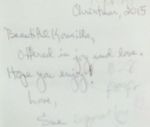 Christmas, 2015
Beautiful
Offered in joy and love.
Hope you enjoy!
Love,